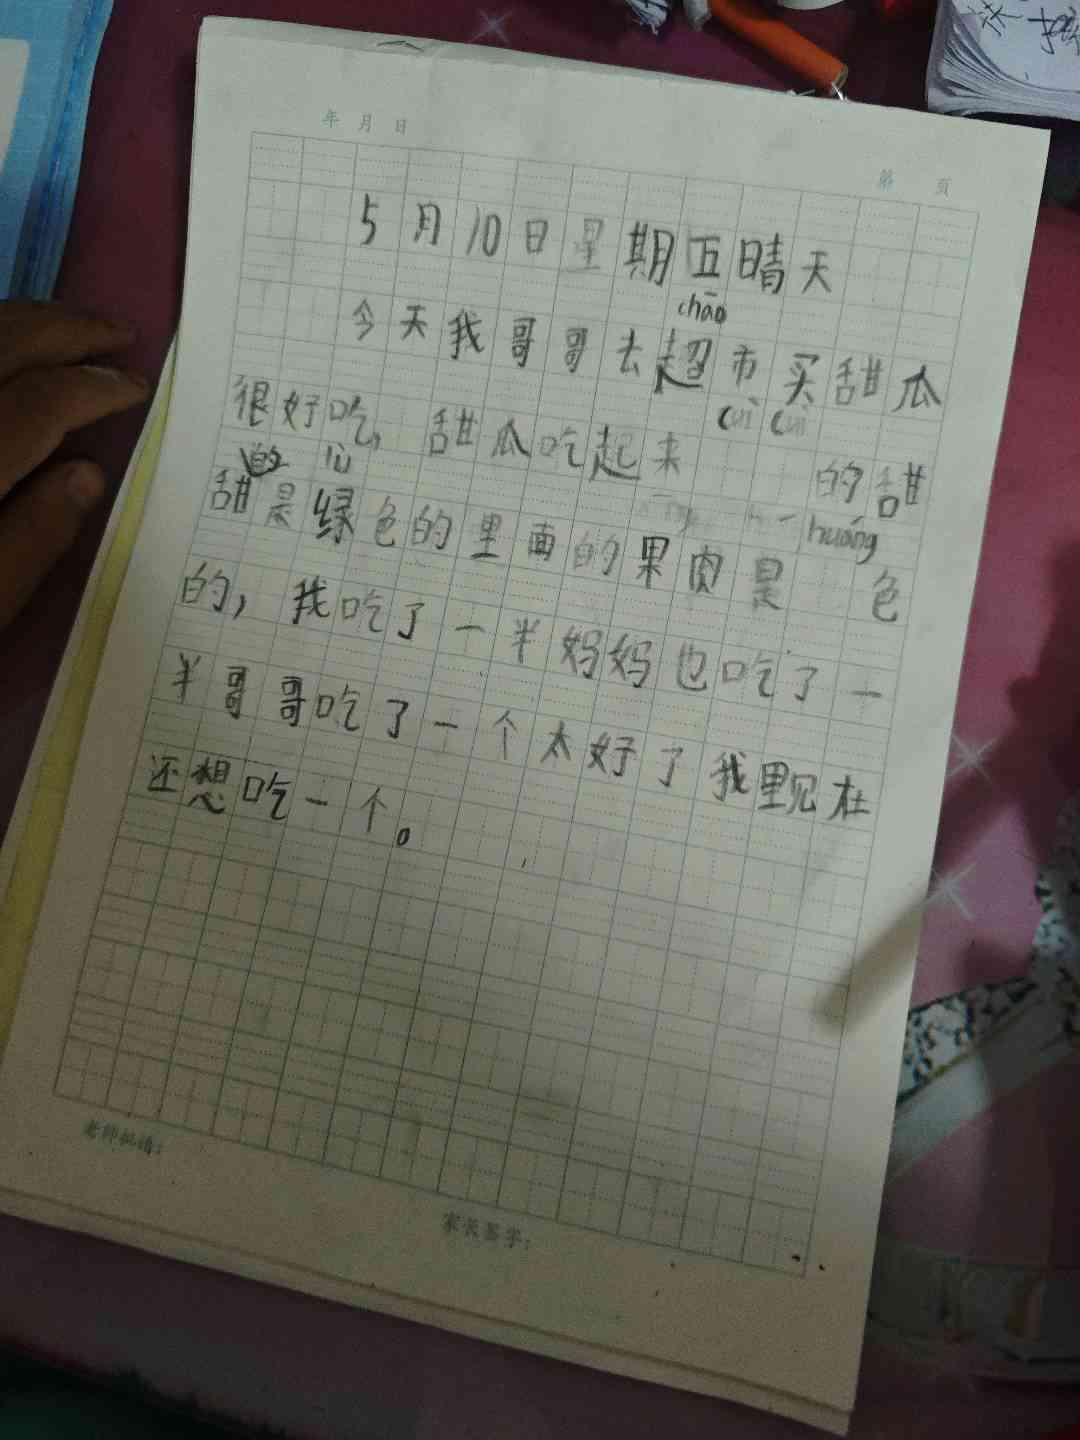 年 月 日
第 页
5月10日星期五晴天
chāo
今天我哥哥去超市买甜瓜
cuì cuì
很好吃，甜瓜吃起来 的甜
甜是绿色的里面的果肉是 色
huáng
的，我吃了一半妈妈也吃了一
半哥哥吃了一个太好了我现在
还想吃一个。
老师批语：
家长签字：